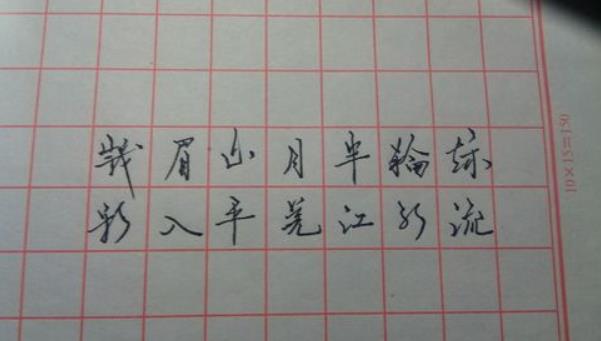 峩眉山月半輪秋
影入平羌江水流
10×15=150